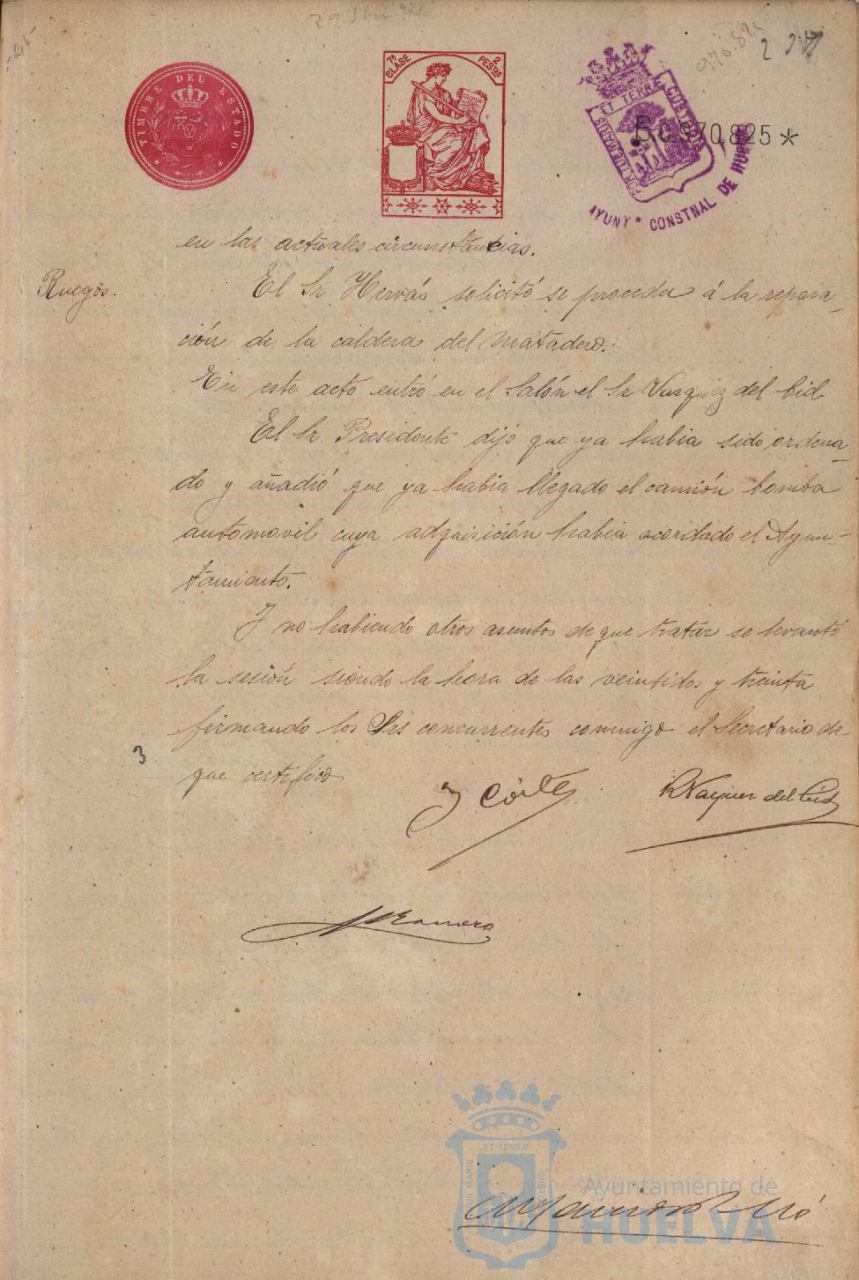 TIMBRE DEL ESTADO
7ª CLASE
2 PESTAS
ET TERRÆ CUSTODIA
AYUNTº CONSTNAL DE HUELVA
5C970825*
970.825
en las actuales circunstancias.
Ruegos.
El Sr Hervás solicitó se proceda á la repara-
ción de la caldera del Matadero.
En este acto entró en el Salón el Sr Vazquez del Cid
El Sr Presidente dijo que ya habia sido ordena-
do y añadió que ya habia llegado el camión bomba
automovil cuya adquisición habia acordado el Ayun-
tamiento.
Y no habiendo otros asuntos de que tratar se levantó
la sesión siendo la hora de las veintidos y treinta
firmando los Srs concurrentes conmigo el Secretario de
que certifico
3
Corte
Vazquez del Cid
Romero
ET TERRÆ
Ayuntamiento de
HUELVA